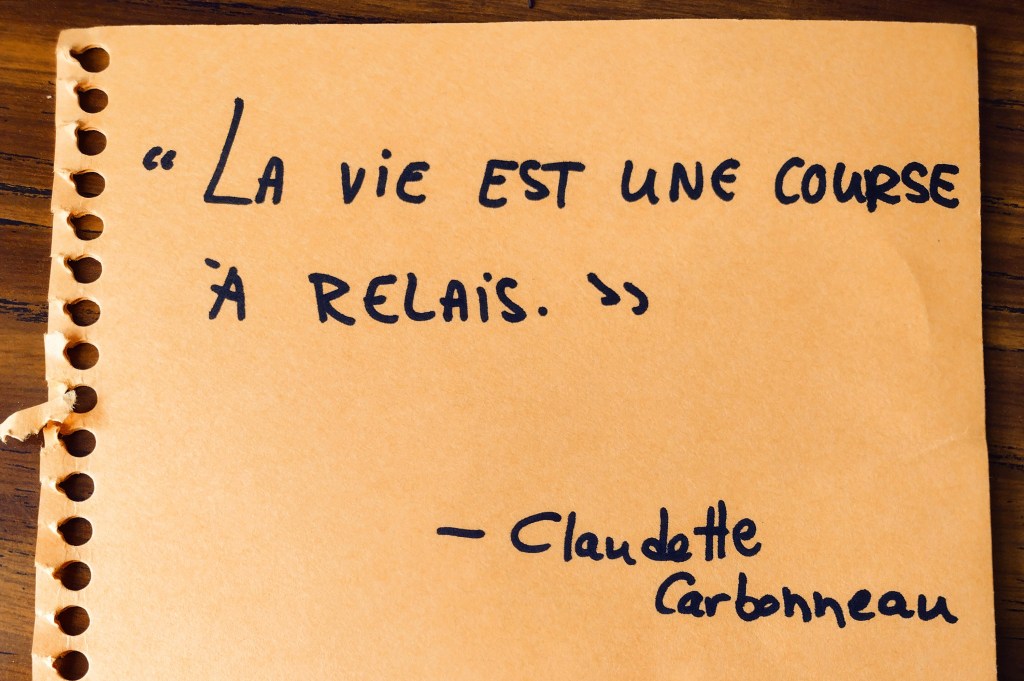 “ LA ViE EST UNE COURSE
À RELAiS. »
— Claudette
Carbonneau